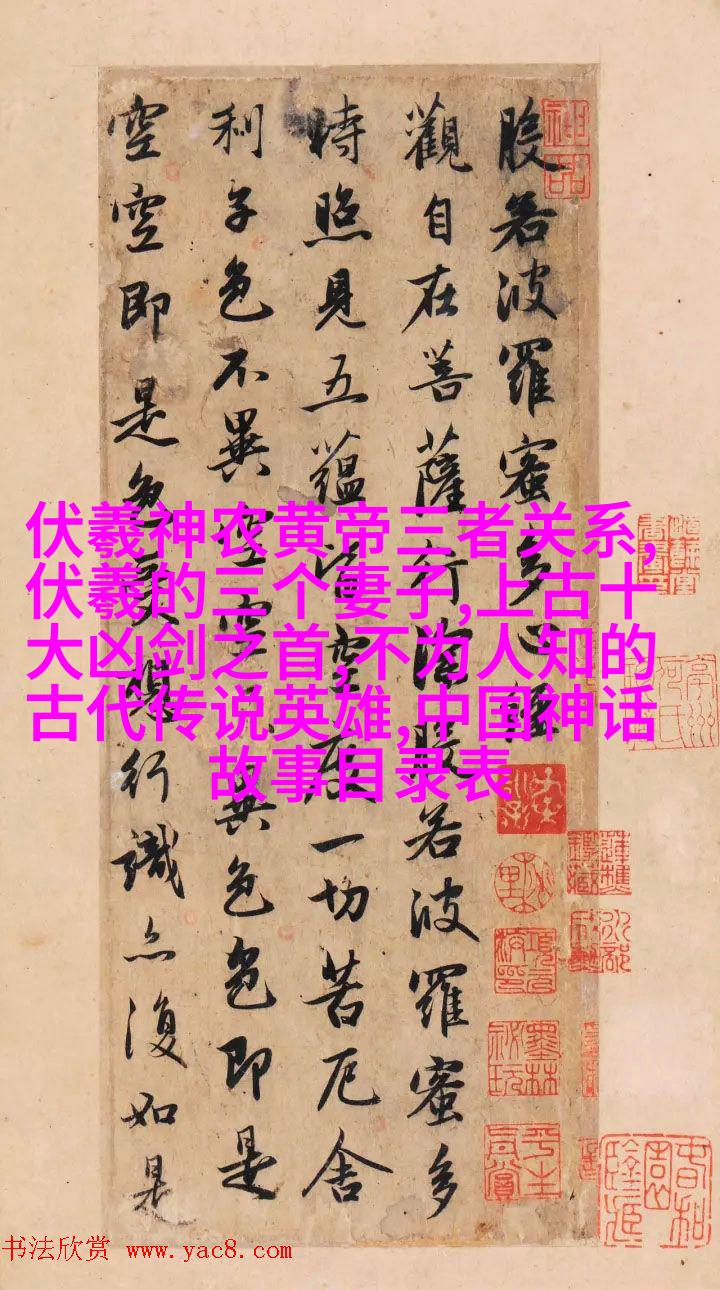 般若波羅蜜多心經
觀自在菩薩行深般若波羅蜜多
時照見五蘊皆空度一切苦厄舍
利子色不異空空不異色色即是
空空即是色受想行識亦復如是
神品
伏羲神农黄帝三者关系,
伏羲的三个妻子,上古十
大凶剑之首,不为人知的
古代传说英雄,中国神话
故事目录表
书法欣赏 www.yac8.com